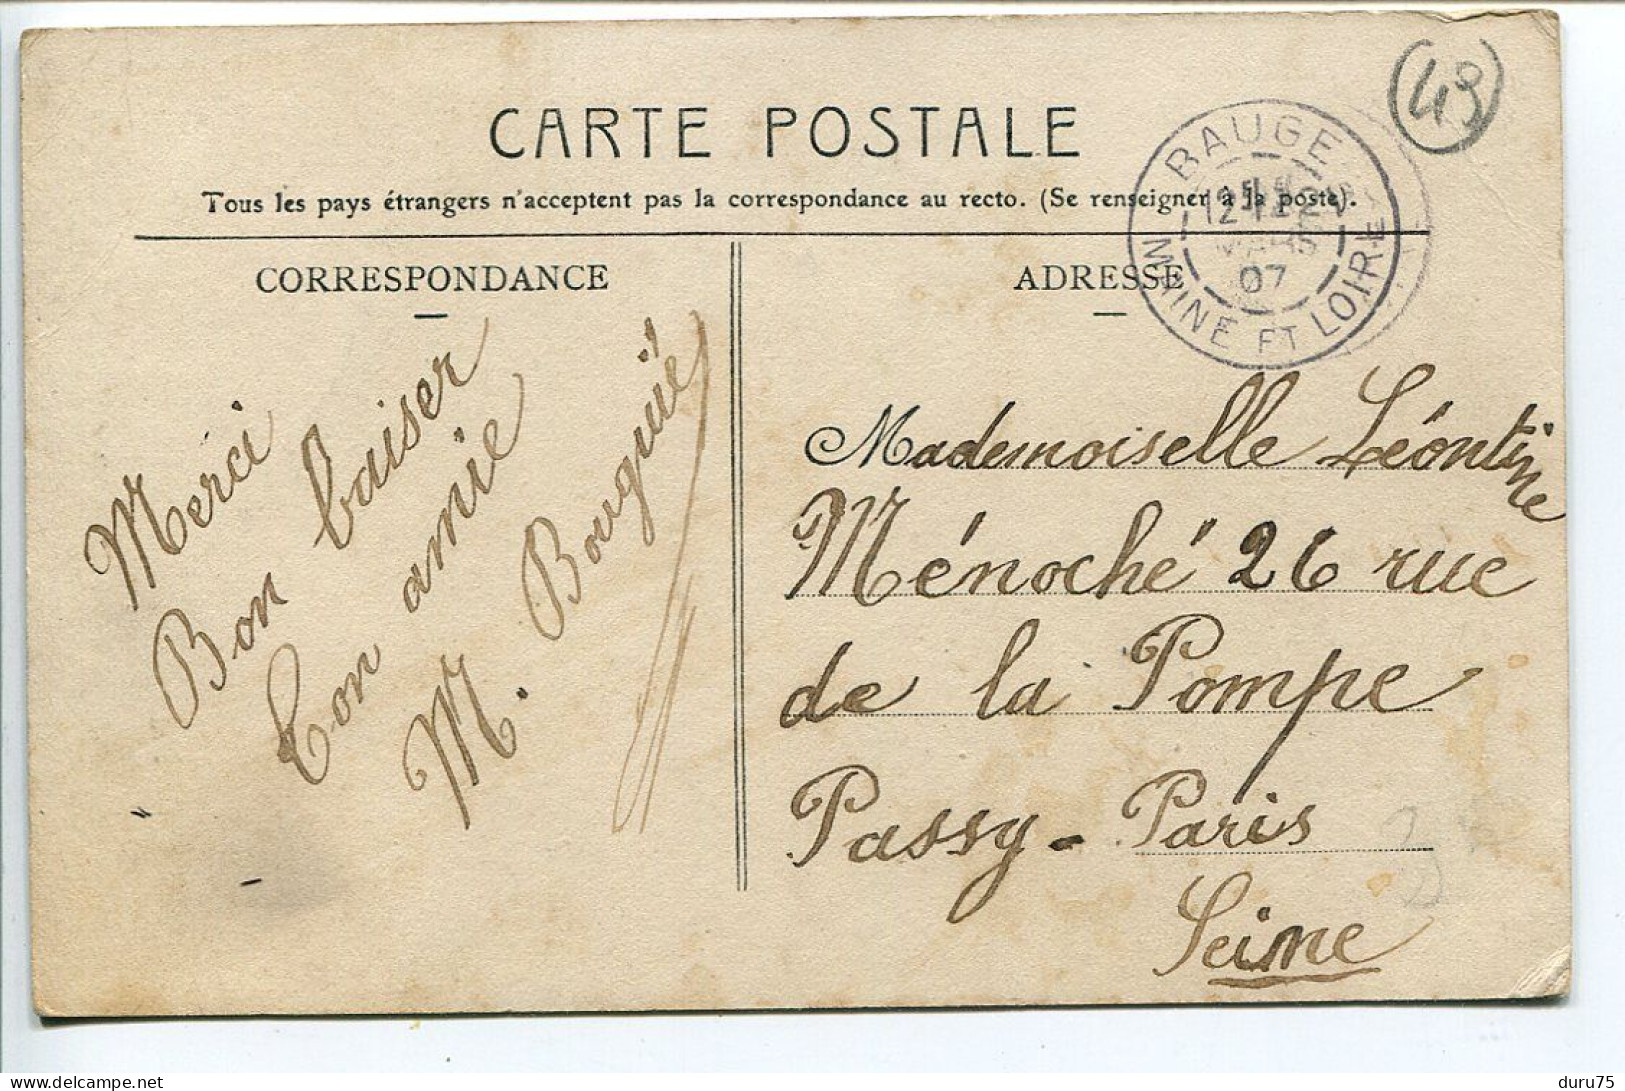 CARTE POSTALE
Tous les pays étrangers n'acceptent pas la correspondance au recto. (Se renseigner à la poste).
CORRESPONDANCE
Merci
Bon baiser
Ton amie
M. Bouguié
ADRESSE
Mademoiselle Léontine
Ménoché 26 rue
de la Pompe
Passy - Paris
Seine
BAUGE
MARS
07
MAINE ET LOIRE
49
delcampe.net
duru75